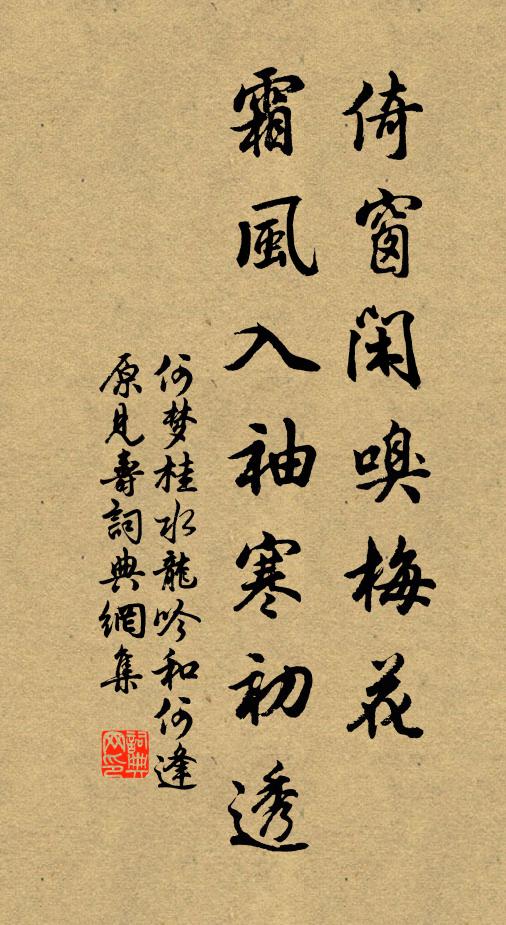 倚窗閑嗅梅花
霜風入袖寒初透
何梦桂水龍吟和何逢
原見壽詞典網集
詞典网印